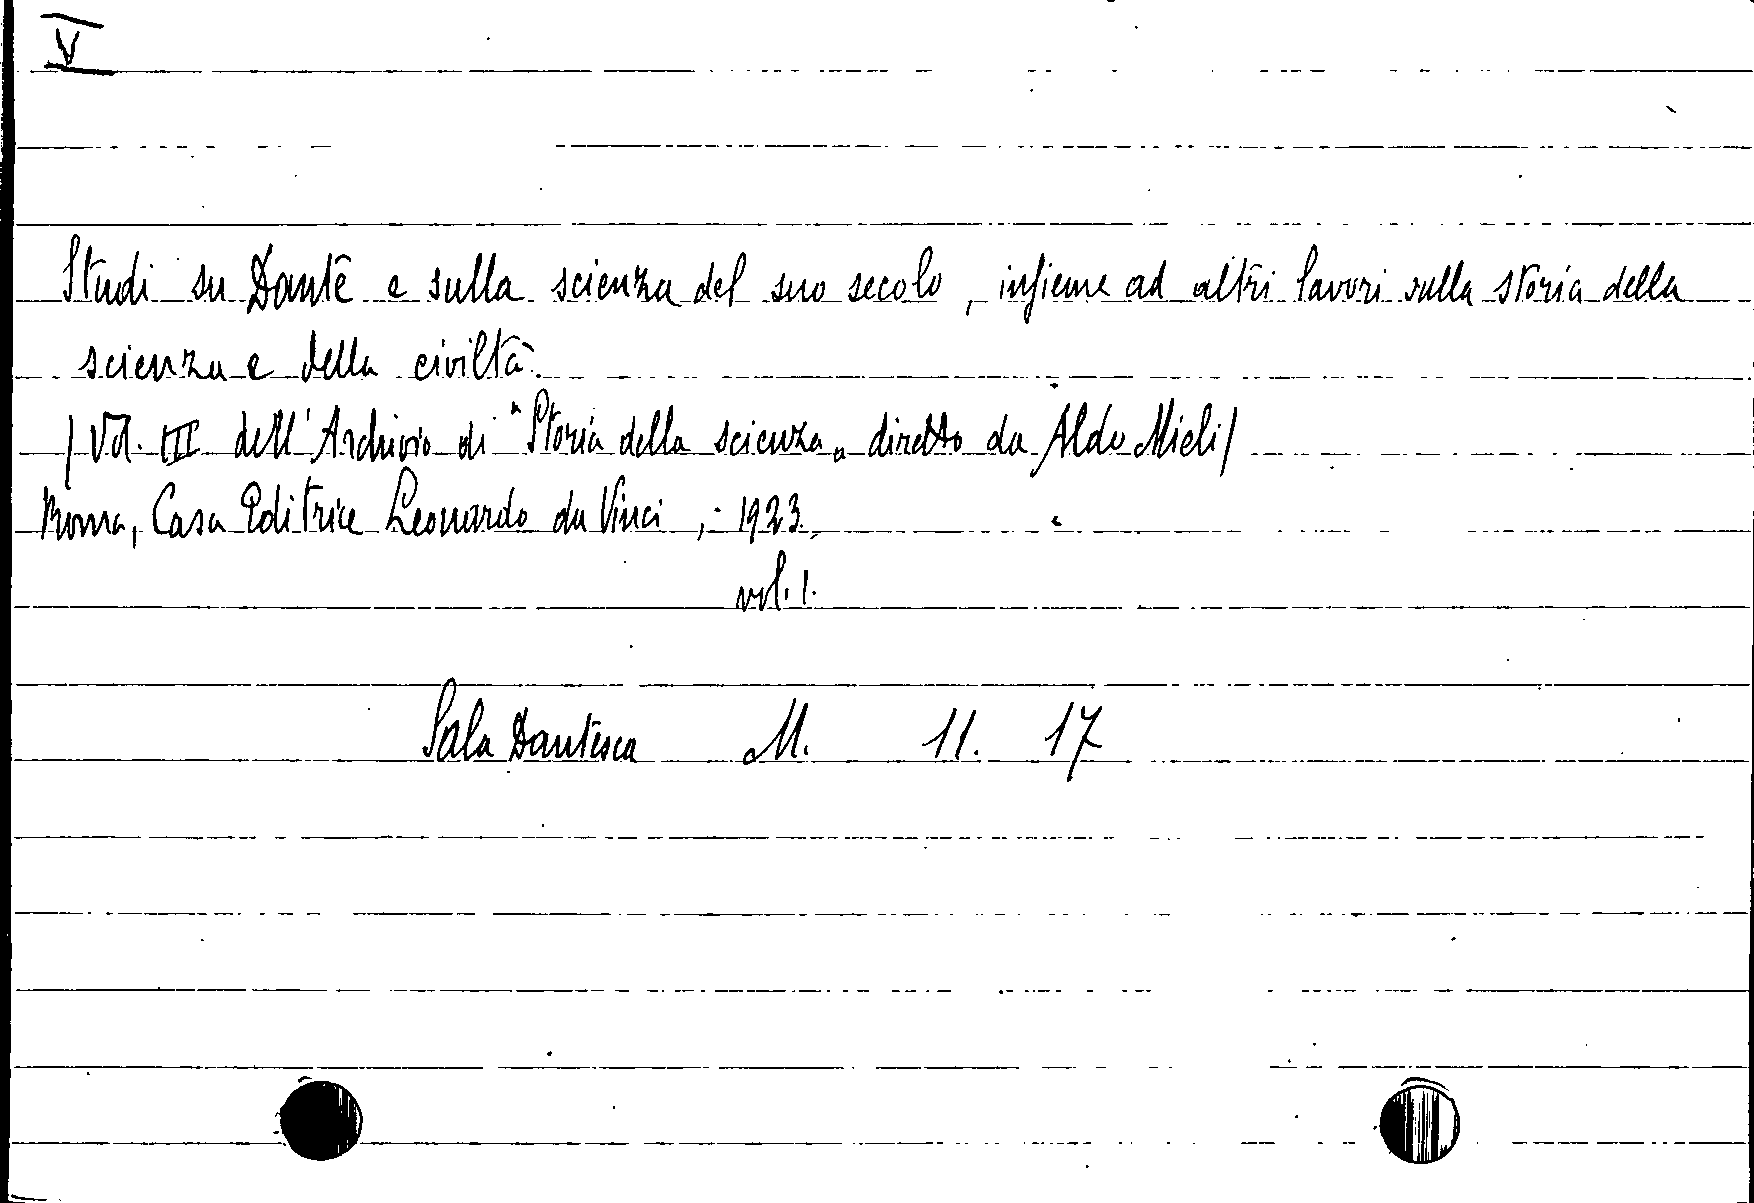 V
Studi su Dante e sulla scienza del suo secolo, insieme ad altri lavori sulla storia della
scienza e della civiltà.
/ Vol. III dell'Archivio di "Storia della scienza„ diretto da Aldo Mieli /
Roma, Casa Editrice Leonardo da Vinci, - 1923.
vol. 1.
Sala Dantesca M. 11. 17